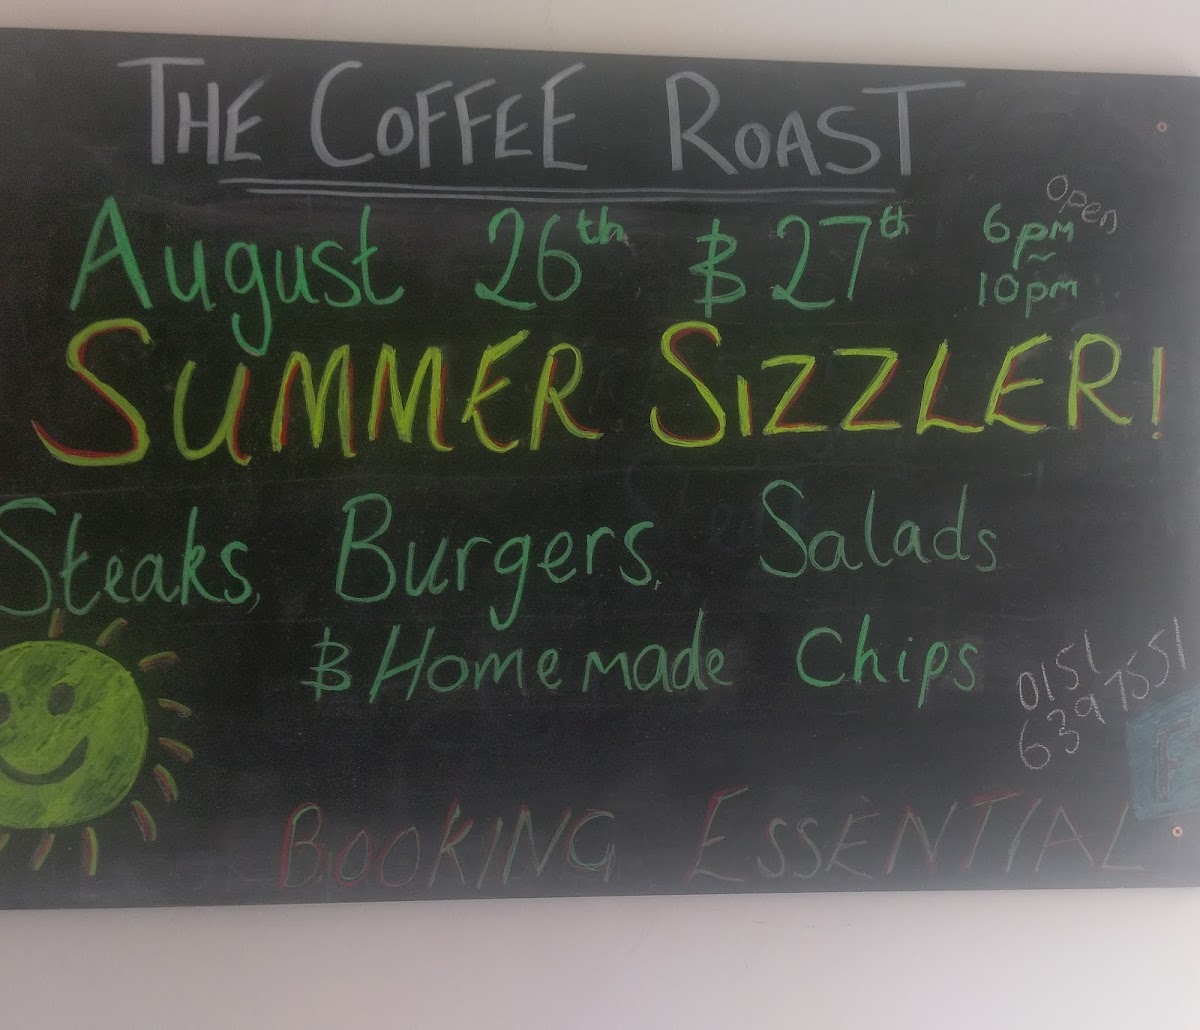 THE COFFEE ROAST
August 26th & 27th
Open
6pm
~
10pm
SUMMER SIZZLER!
Steaks, Burgers, Salads
& Homemade Chips
0151
639 7551
BOOKING ESSENTIAL